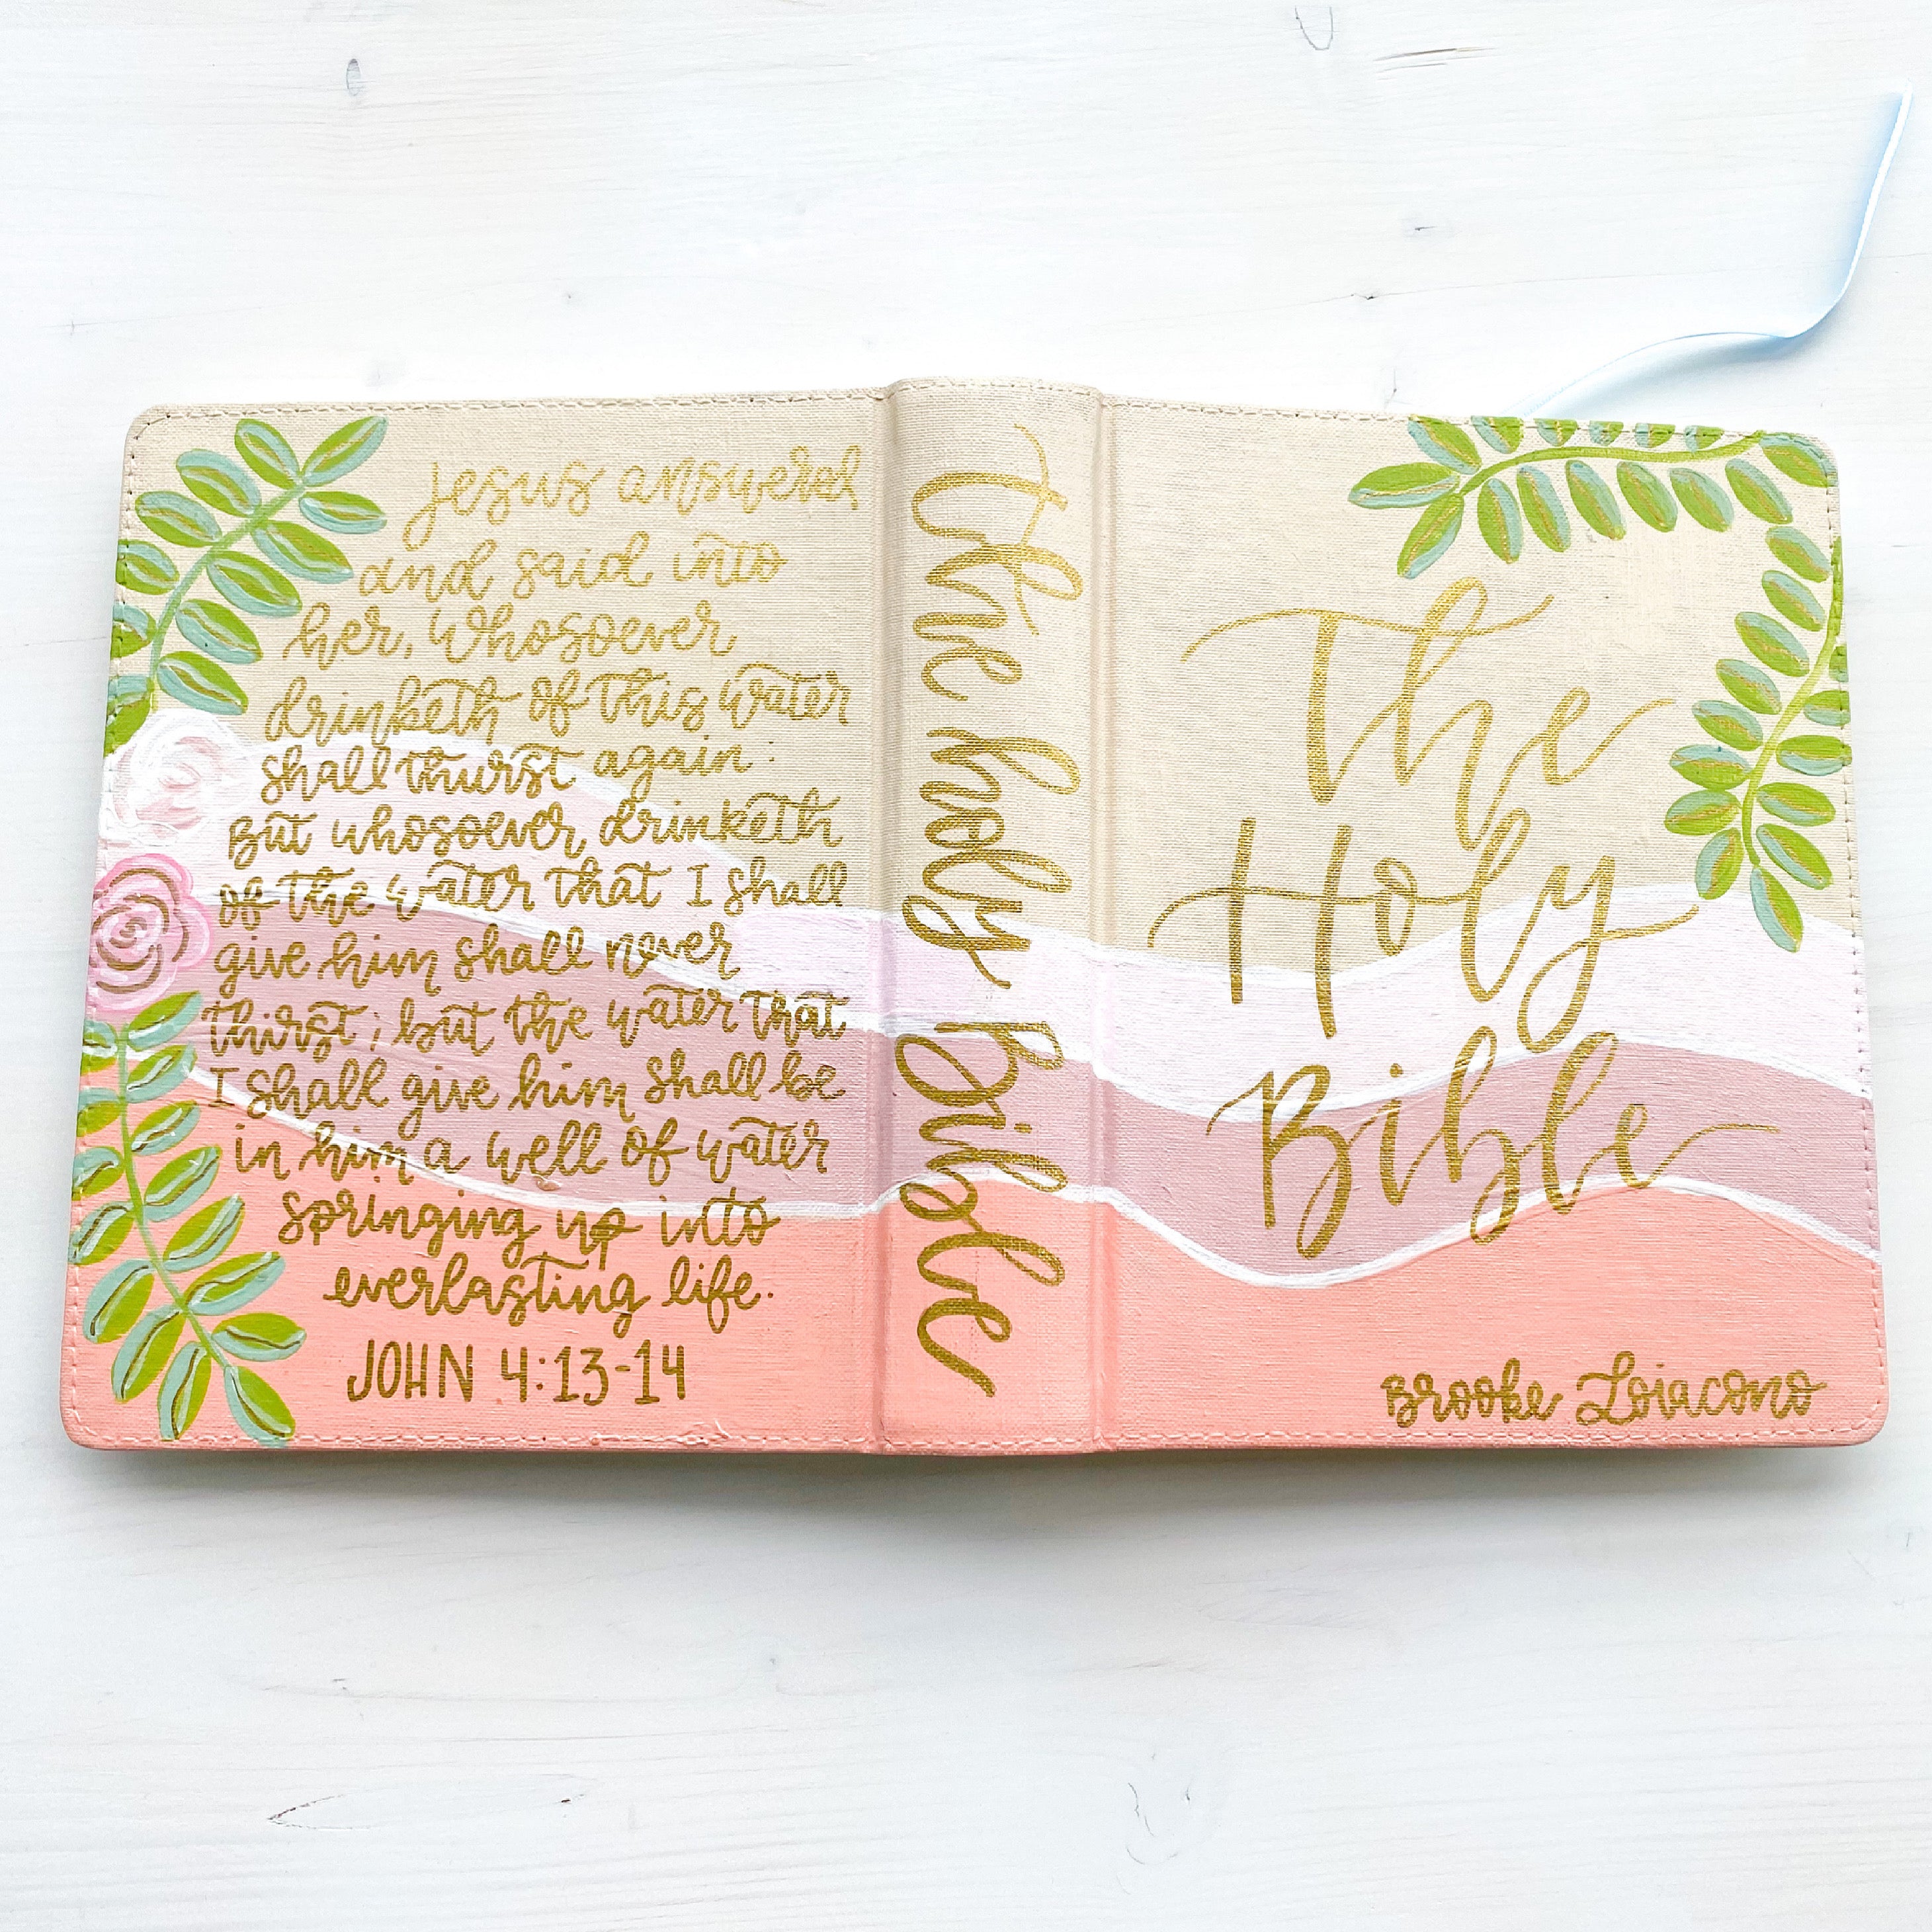 Jesus answered
and said into
her, Whosoever
drinketh of this water
shall thurst again:
But whosoever drinketh
of the water that I shall
give him shall never
thirst; but the water that
I shall give him shall be
in him a well of water
springing up into
everlasting life.
JOHN 4:13-14
the holy Bible
The
Holy
Bible
Brooke Loiacono